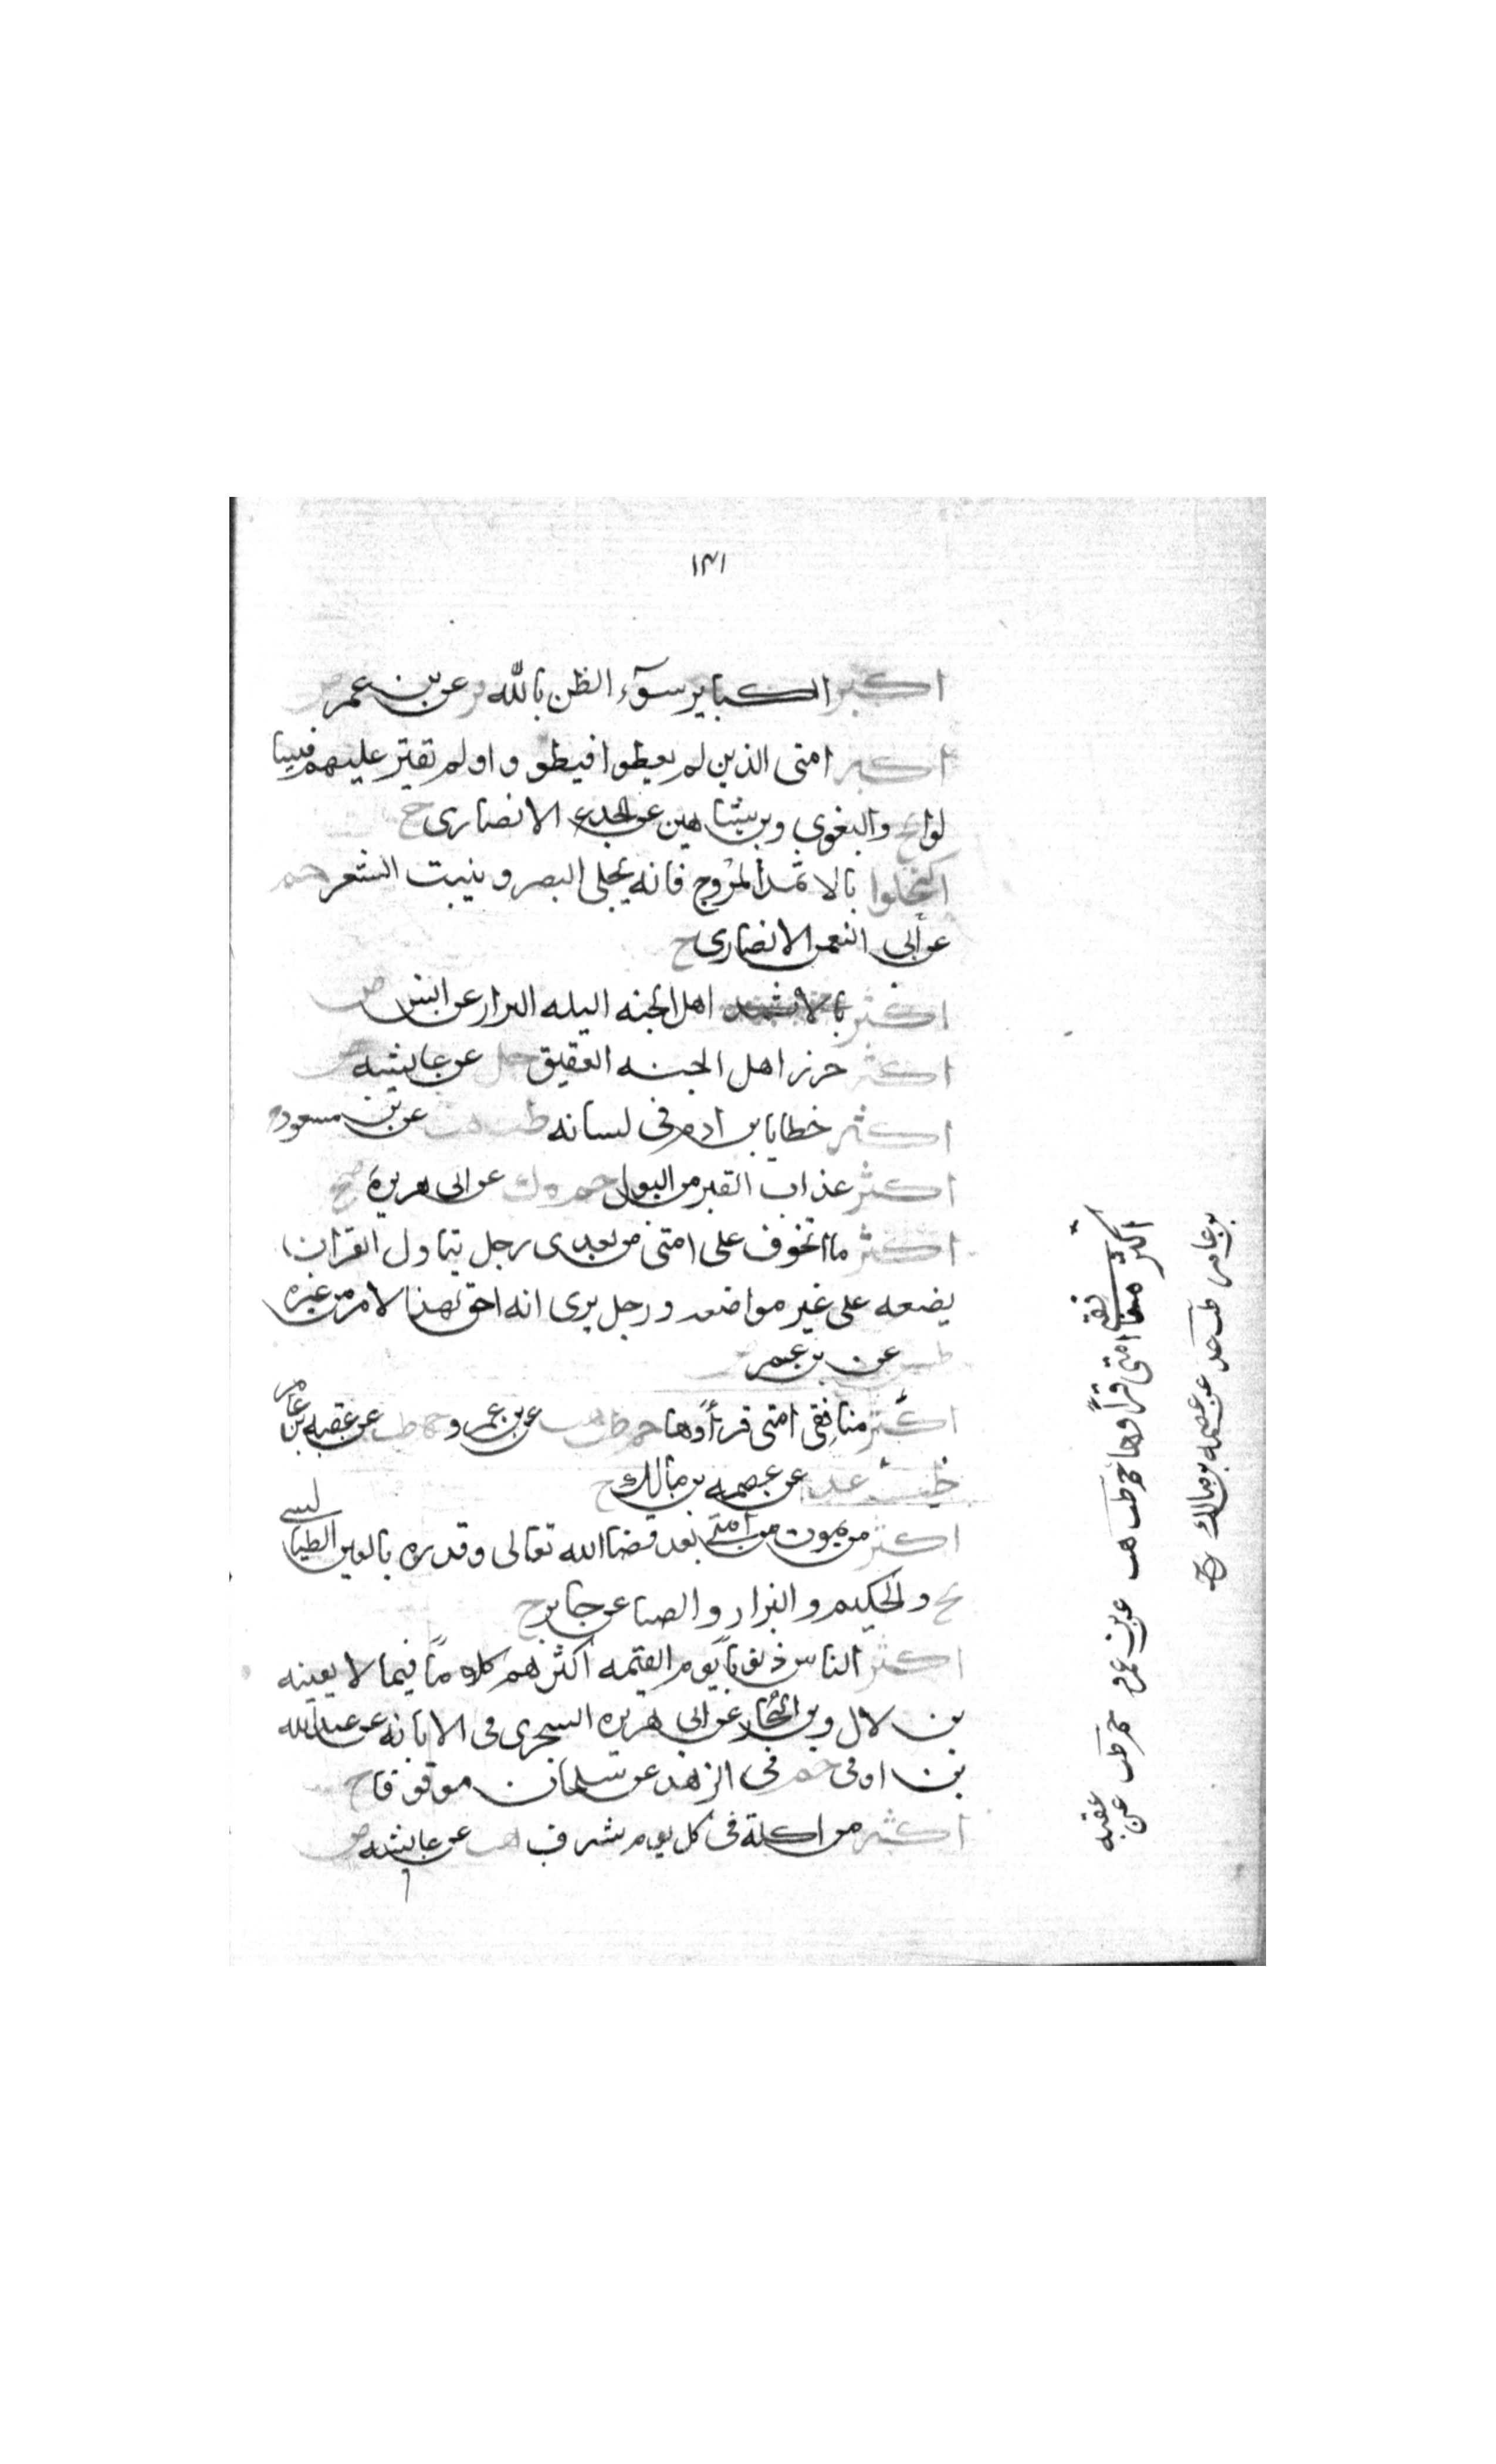 ١٣١
اكبر الكباير سوء الظن بالله فر عن بن عمر ض
اكبر امتى الذين لم يعطوا فيبطروا ولم تقتر عليهم فيسا
لوا تخ والبغوي وبن شاهين عن الجدع الانصارى ح
اكتحلوا بالاثمد المروح فانه يجلى البصر وينبت الشعر حم
عن ابى النعمن الانصارى ح
اكثر اهل الجنه البله البزار عن انس ض
اكثر خرز اهل الجنه العقيق حل عن عايشه ض
اكثر خطايا بن ادم فى لسانه طب هب عن بن مسعود
اكثر عذاب القبر من البول حم ه ك عن ابى هريرة صح
اكثر ما اتخوف على امتى من بعدى رجل يتاول القران
يضعه على غير مواضعه ورجل يرى انه احق بهذا الامر من غيره
طس عن بن عمر
اكثر منافقى امتى قرأوها حم طب هب عن بن عمرو حم طب عن عقبه بن عامر
طب عد عن عصمه بن مالك ح
اكثر من يموت من امتى بعد قضا الله تعالى وقدره بالعين الطيا لسى
تخ والحكيم والبزار والضيا عن جابر ح
اكثر الناس ذنوبا يوم القيمه اكثرهم كلاما فيما لا يعينه
بن لال وبن النجار عن ابى هريره السجزى فى الابانه عن عبدالله
بن اوفى حم فى الزهد عن سلمان موقوفا ح
اكثر من اكلة فى كل يوم سرف هب عن عايشه ض
اكثر منافقى امتى قرأوها حم طب هب عن بن عمرو حم طب عن عقبه
بن عامر طب عد عن عصمه بن مالك ح